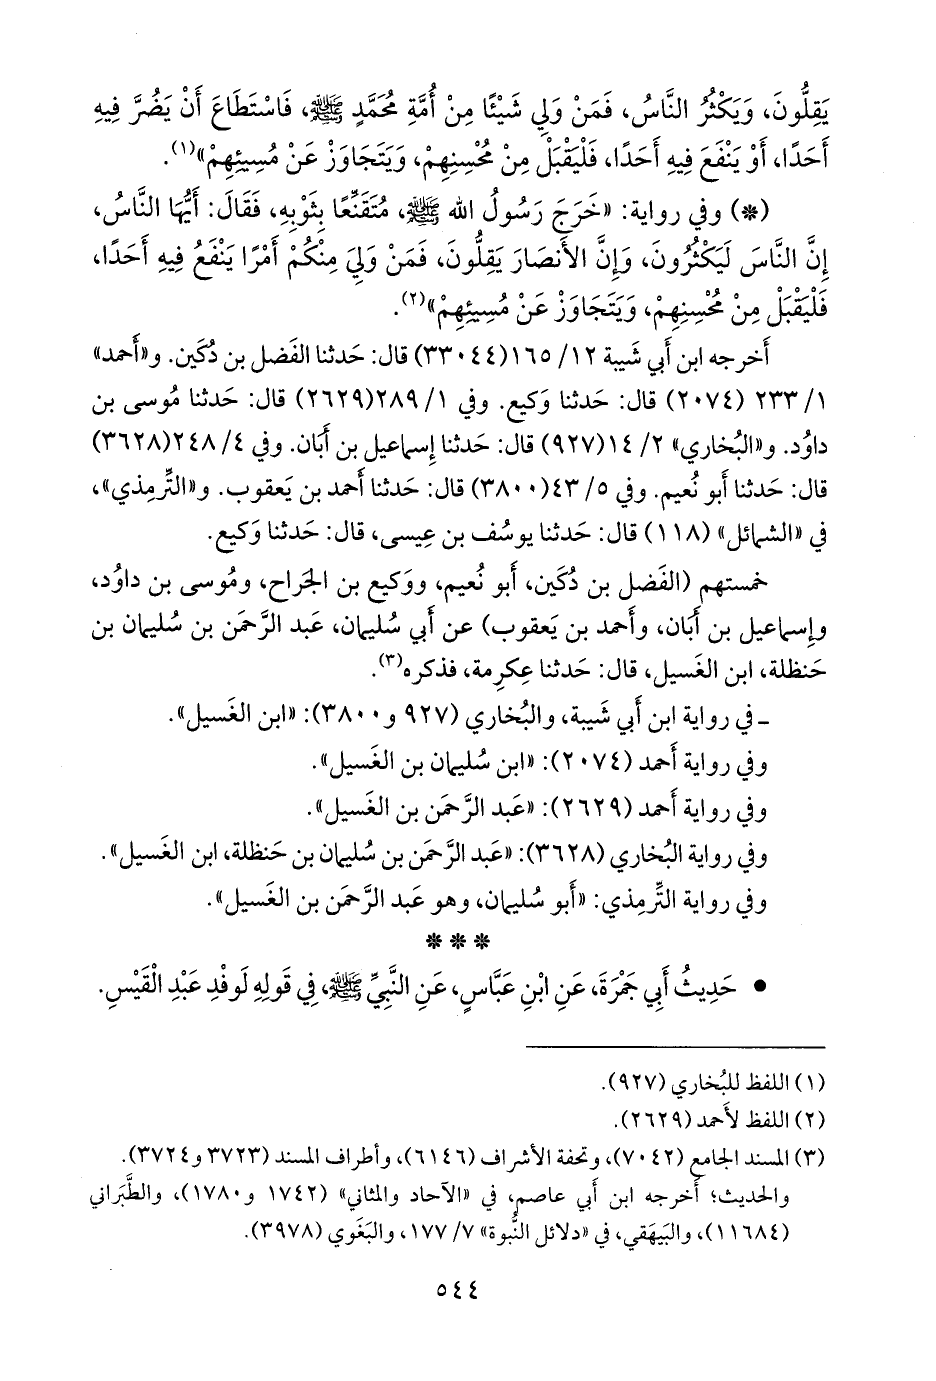 يَقِلُّونَ، وَيَكْثُرُ النَّاسُ، فَمَنْ وَلِي شَيْئًا مِنْ أُمَّةِ مُحَمَّدٍ ﷺ، فَاسْتَطَاعَ أَنْ يَضُرَّ فِيهِ
أَحَدًا، أَوْ يَنْفَعَ فِيهِ أَحَدًا، فَلْيَقْبَلْ مِنْ مُحْسِنِهِمْ، وَيَتَجَاوَزْ عَنْ مُسِيئِهِمْ»(١).
(*) وفي رواية: «خَرَجَ رَسُولُ الله ﷺ، مُتَقَنِّعًا بِثَوْبِهِ، فَقَالَ: أَيُّهَا النَّاسُ،
إِنَّ النَّاسَ لَيَكْثُرُونَ، وَإِنَّ الأَنْصَارَ يَقِلُّونَ، فَمَنْ وَلِيَ مِنْكُمْ أَمْرًا يَنْفَعُ فِيهِ أَحَدًا،
فَلْيَقْبَلْ مِنْ مُحْسِنِهِمْ، وَيَتَجَاوَزْ عَنْ مُسِيئِهِمْ»(٢).
أَخرجه ابن أَبي شَيبة ١٢/ ١٦٥(٣٣٠٤٤) قال: حَدثنا الفَضل بن دُكَين. و«أَحمد»
١/ ٢٣٣ (٢٠٧٤) قال: حَدثنا وَكيع. وفي ١/ ٢٨٩(٢٦٢٩) قال: حَدثنا مُوسى بن
داوُد. و«البُخاري» ٢/ ١٤(٩٢٧) قال: حَدثنا إِسماعيل بن أَبَان. وفي ٤/ ٢٤٨(٣٦٢٨)
قال: حَدثنا أَبو نُعيم. وفي ٥/ ٤٣(٣٨٠٠) قال: حَدثنا أَحمد بن يَعقوب. و«التِّرمِذي»،
في «الشمائل» (١١٨) قال: حَدثنا يوسُف بن عِيسى، قال: حَدثنا وَكيع.
خمستهم (الفَضل بن دُكَين، أَبو نُعيم، ووَكيع بن الجَراح، ومُوسى بن داوُد،
وإِسماعيل بن أَبَان، وأَحمد بن يَعقوب) عن أَبي سُليمان، عَبد الرَّحمَن بن سُليمان بن
حَنظلة، ابن الغَسيل، قال: حَدثنا عِكرِمة، فذكره(٣).
ـ في رواية ابن أَبي شَيبة، والبُخاري (٩٢٧ و٣٨٠٠): «ابن الغَسيل».
وفي رواية أَحمد (٢٠٧٤): «ابن سُليمان بن الغَسيل».
وفي رواية أَحمد (٢٦٢٩): «عَبد الرَّحمَن بن الغَسيل».
وفي رواية البُخاري (٣٦٢٨): «عَبد الرَّحمَن بن سُليمان بن حَنظلة، ابن الغَسيل».
وفي رواية التِّرمِذي: «أَبو سُليمان، وهو عَبد الرَّحمَن بن الغَسيل».
***
• حَدِيثُ أَبِي جَمْرَةَ، عَنِ ابْنِ عَبَّاسٍ، عَنِ النَّبِيِّ ﷺ، فِي قَوْلِهِ لَوَفْدِ عَبْدِ الْقَيْسِ.
(١) اللفظ للبُخاري (٩٢٧).
(٢) اللفظ لأَحمد (٢٦٢٩).
(٣) المسند الجامع (٧٠٤٢)، وتحفة الأشراف (٦١٤٦)، وأطراف المسند (٣٧٢٣ و٣٧٢٤).
والحديث؛ أَخرجه ابن أَبي عاصم، في «الآحاد والمثاني» (١٧٤٢ و١٧٨٠)، والطَّبَراني
(١١٦٨٤)، والبَيهَقي، في «دلائل النُّبوة» ٧/ ١٧٧، والبَغَوي (٣٩٧٨).
٥٤٤